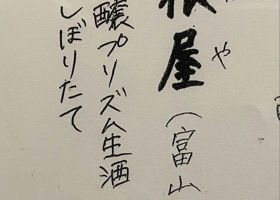 根屋(富山
や
醸プリズム生酒
しぼりたて